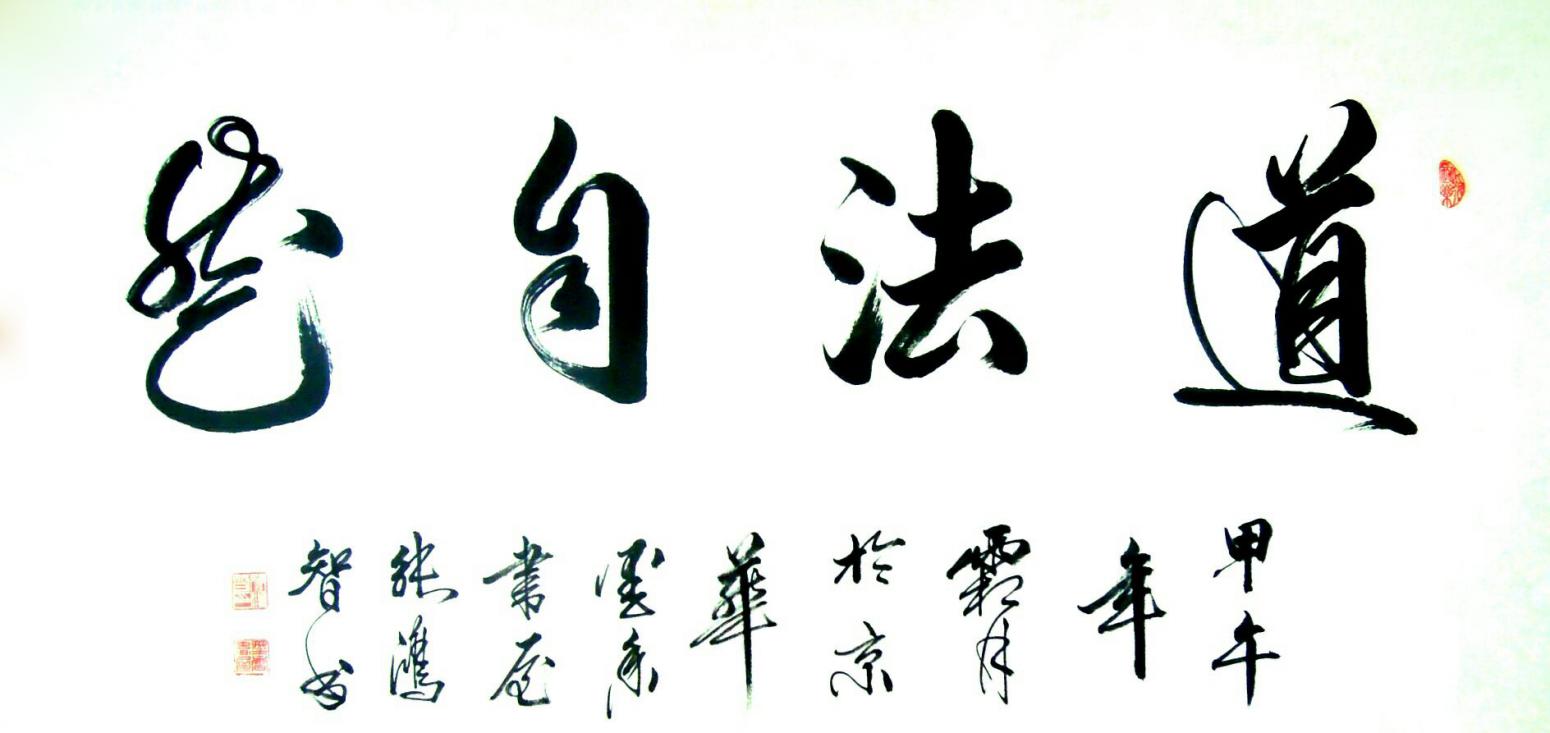 道法自然
甲午
年
霜月
於京
華
墨香
書屋
張鴻
智书